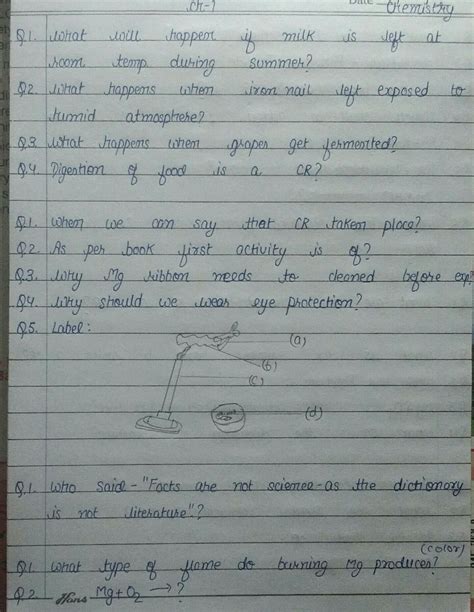 Ch-1 Date Chemistry
Q1. What will happen if milk is left at
room temp. during summer?
Q2. What happens when iron nail left exposed to
humid atmosphere?
Q3. What happens when grapes get fermented?
Q4. Digestion of food is a CR?
Q1. When we can say that CR taken place?
Q2. As per book first activity is of?
Q3. Why Mg ribbon needs to cleaned before exp?
Q4. Why should we wear eye protection?
Q5. Label:
(a)
(b)
(c)
(d)
Q.1. Who said - "Facts are not science - as the dictionary
is not literature"?
(color)
Q1. What type of flame do burning Mg produces?
Q2. Mg + O2 → ?